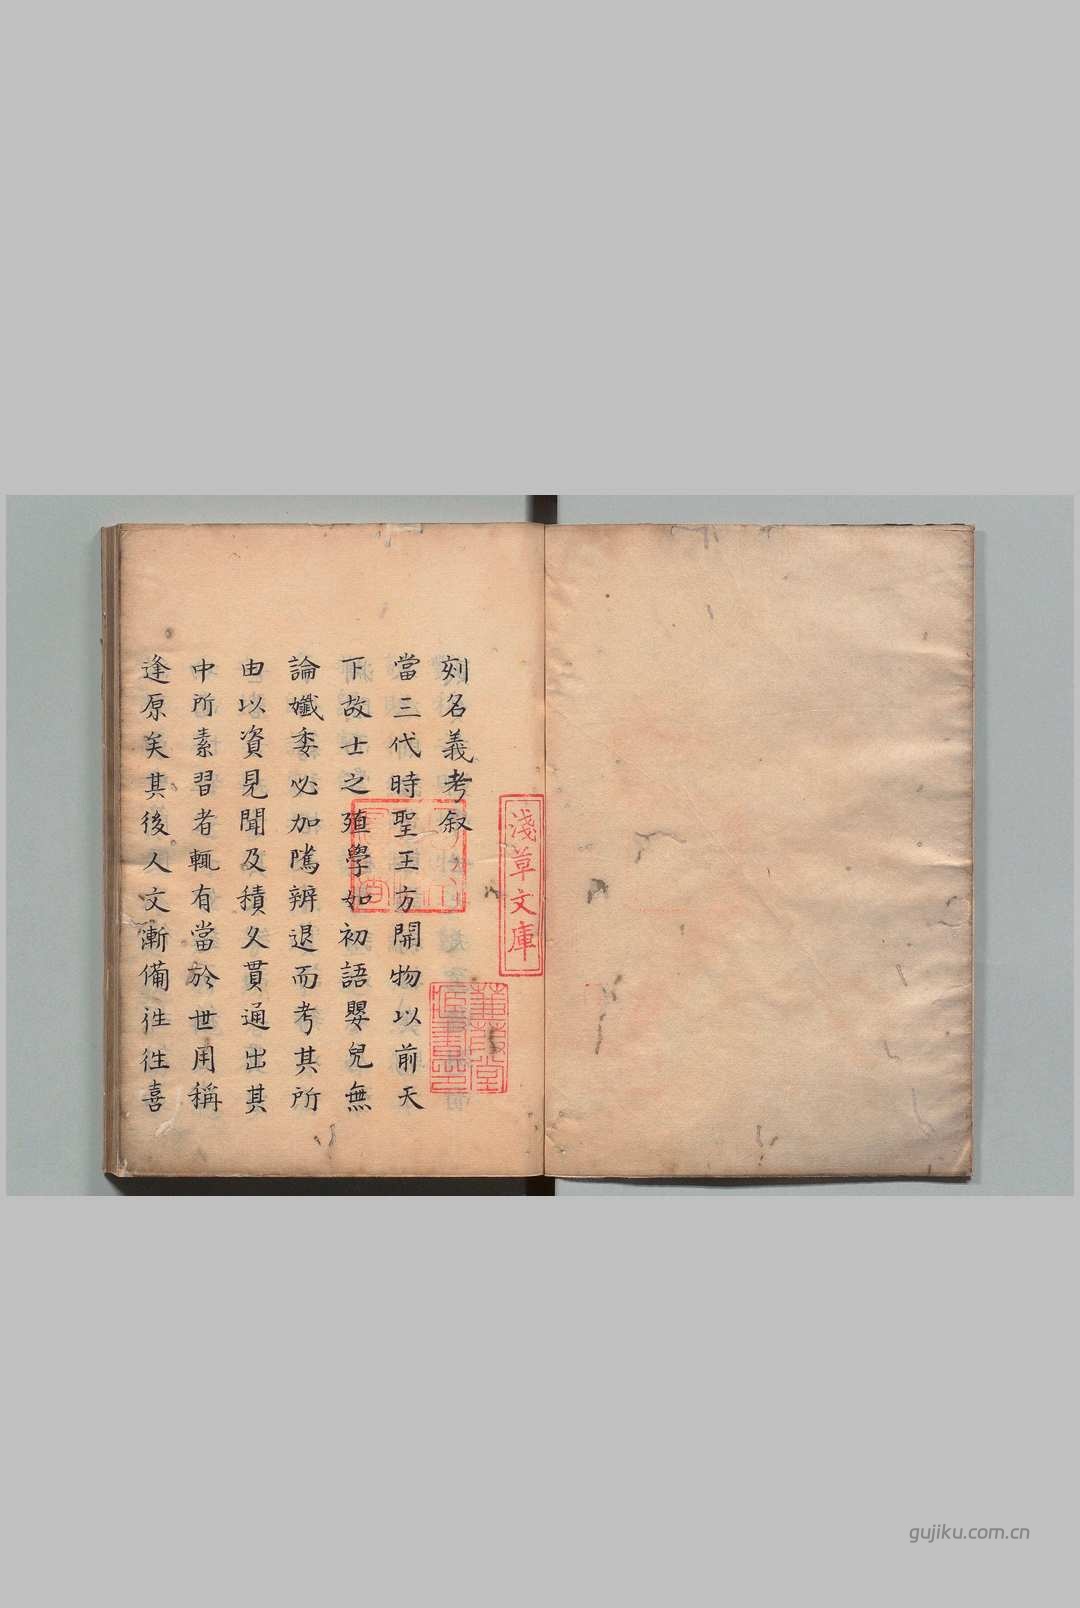 刻名義考叙
當三代時聖王方開物以前天
下故士之殖學如初語嬰兒無
論孅委必加隲辨退而考其所
由以資見聞及積久貫通出其
中所素習者輒有當於世用稱
逢原矣其後人文漸備往往喜
淺草文庫
蒹葭堂
藏書印
gujiku.com.cn